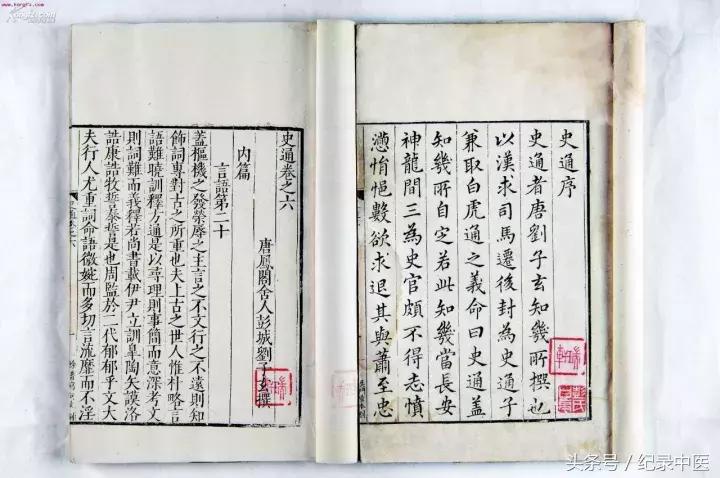 史通序
史通者唐劉子玄知幾所撰也
以漢求司馬遷後封為史通子
兼取白虎通之義命曰史通蓋
知幾所自定若此知幾當長安
神龍間三為史官頗不得志憤
懣悁悒數欲求退其與蕭至忠
史通卷之六
唐鳳閣舍人彭城劉子玄撰
內篇
言語第二十
蓋樞機之發榮辱之主言之不文行之不遠則知
飾詞專對古之所重也夫上古之世人惟朴略言
語難曉訓釋方通是以尋理則事簡而意深考文
則詞難而義釋若尚書載伊尹立訓皋陶矢謨洛
誥康誥牧誓泰誓是也周監於二代郁郁乎文大
夫行人尤重詞命語微婉而多切言流靡而不淫
头条号/纪录中医